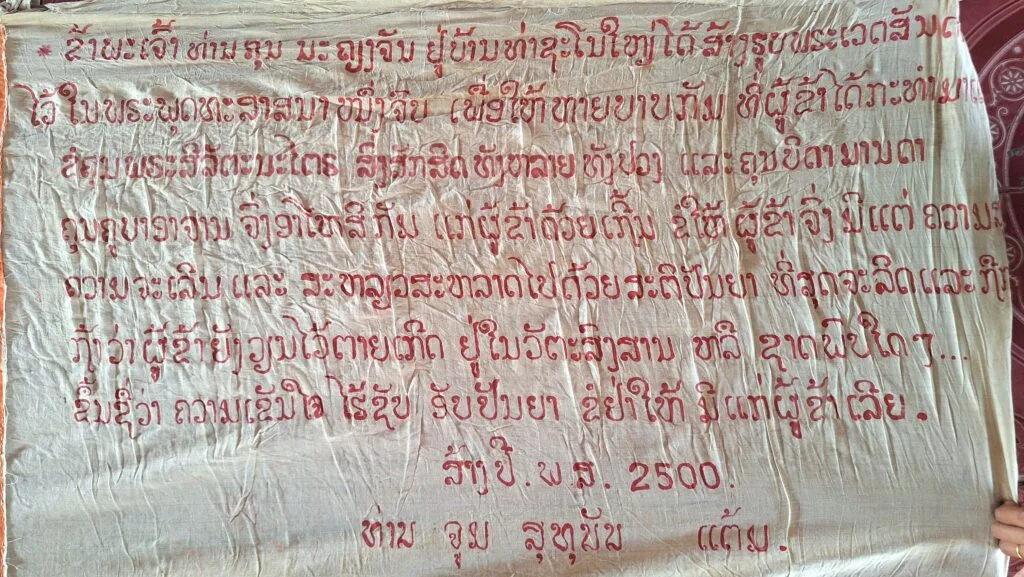 * ຂ້າພະເຈົ້າ ທ່ານ ຄຸນ ນະຍງຈັນ ຢູ່ບ້ານທ່າຊະໂນໃຫຽ່ ໄດ້ສ້າງຮູບພຣະເວດສັນດ
ໄວ້ ໃນພຣະພຸດທະສາສນາ ໜຶ່ງຈົບ ເພື່ອໃຫ້ຫາຍບາບກັມ ທີ່ຜູ້ຂ້າໄດ້ກະທຳມາ
ຂໍຄຸນພຣະສີລັຕະນະໄຕຣ ສິ່ງສັກສິດ ທັງຫລາຍ ທັງປວງ ແລະຄຸນບິດາມານດາ
ຄຸນຄູບາອາຈານ ຈົ່ງອາໂຫສິກັມ ແກ່ຜູ້ຂ້າດ້ວຍເຖີ້ນ ຂໍໃຫ້ ຜູ້ຂ້າຈົ່ງ ມີແຕ່ ຄວາມ
ຄວາມຈະເລີນ ແລະ ສະຫລຽວສະຫລາດໄປດ້ວຍສະຕິປັນຍາ ທີ່ສຸດຈະລິດແລະ
ຖ້າວ່າຜູ້ຂ້າຍັງວຽນໄວ້ຕາຍເກີດ ຢູ່ໃນວັຕະສົງສານ ຫລື ຊາດພົບໃດໆ...
ຂຶ້ນຊື່ວ່າ ຄວາມເຂັນໃຈ ໄຮ້ຊັບ ອັບປັນຍາ ຂໍຢ່າໃຫ້ ມີແກ່ຜູ້ຂ້າເລີຍ.
ສ້າງປີ. ພ.ສ. 2500.
ທ່ານ ຈູມ ສຸທຸນັນ ແຕ້ມ.